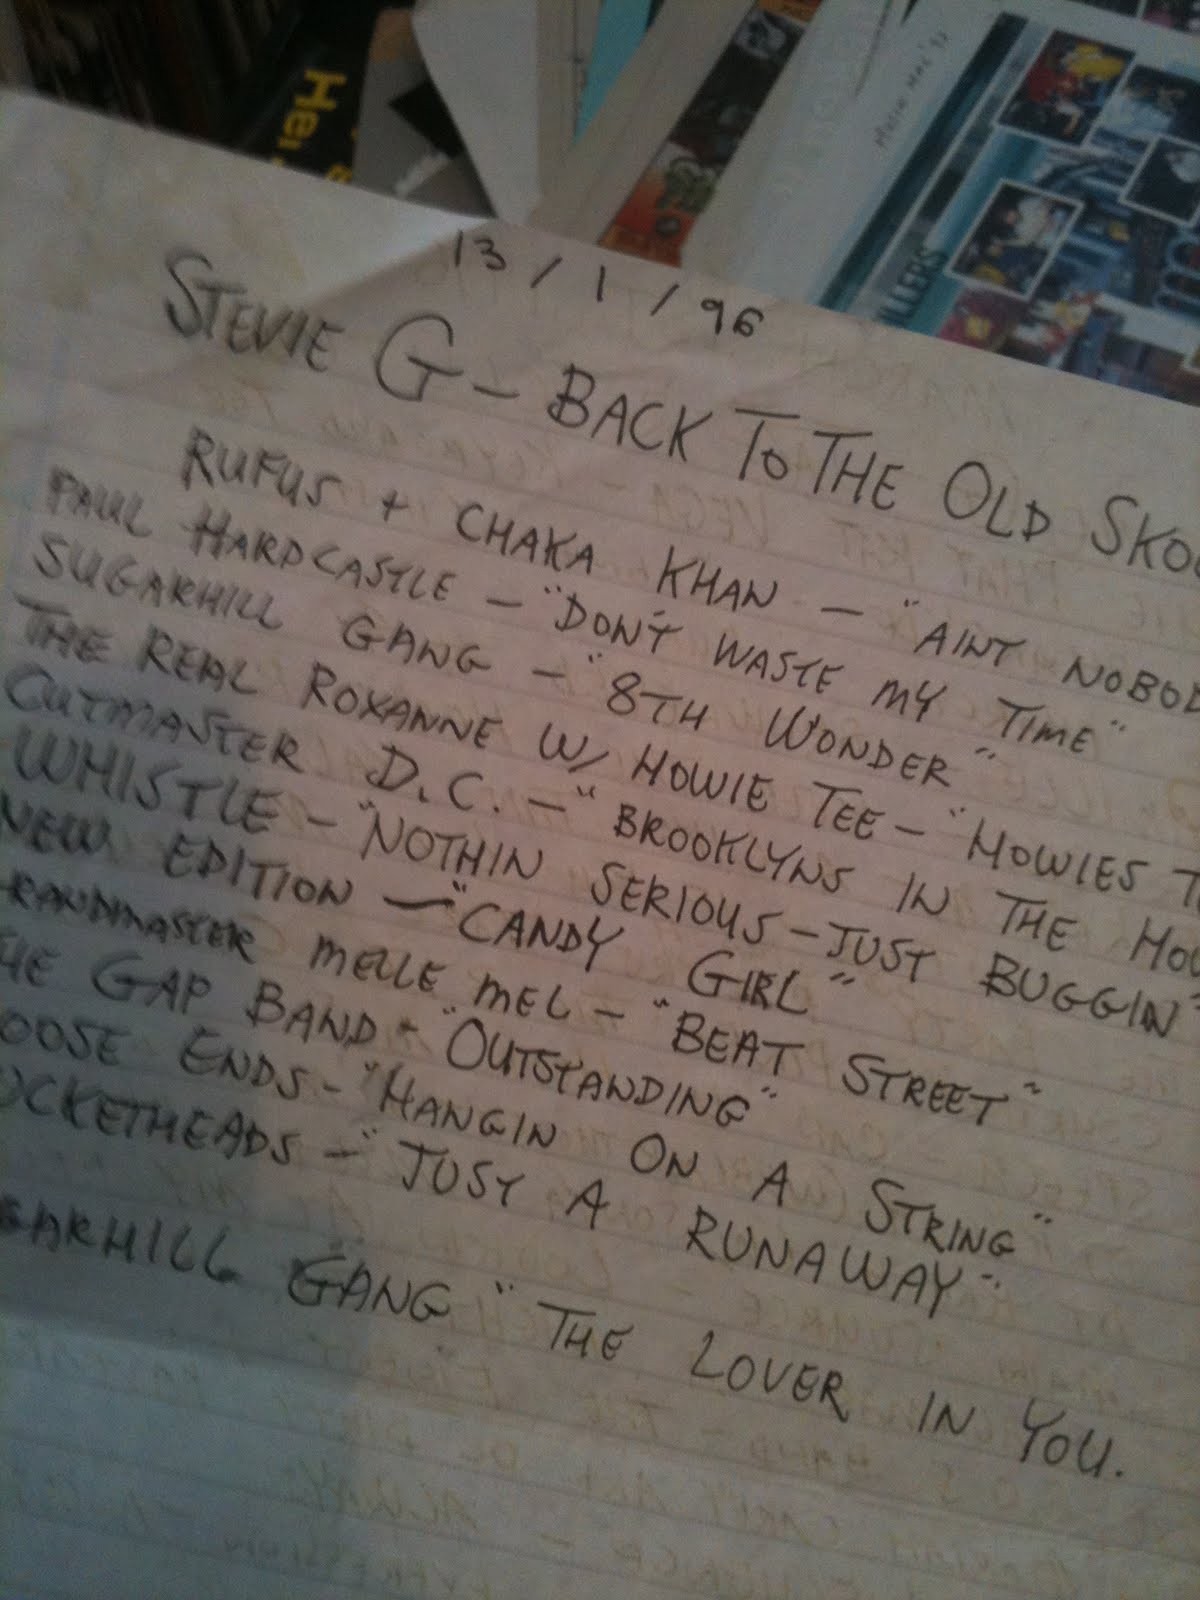 Hei
MUSIC MAG '92
13/1/96
STEVIE G - BACK TO THE OLD SKOO
RUFUS + CHAKA KHAN - "AINT NOBOD
PAUL HARDCASTLE - "DON'T WASTE MY TIME"
SUGARHILL GANG - "8TH WONDER"
THE REAL ROXANNE W/ HOWIE TEE - "HOWIES T
CUTMASTER D.C. - "BROOKLYNS IN THE HOU
WHISTLE - "NOTHIN SERIOUS - JUST BUGGIN"
NEW EDITION - "CANDY GIRL"
RANDMASTER MELLE MEL - "BEAT STREET"
HE GAP BAND - "OUTSTANDING"
OOSE ENDS - "HANGIN ON A STRING"
OCKETHEADS - "JUST A RUNAWAY"
GARHILL GANG "THE LOVER IN YOU.